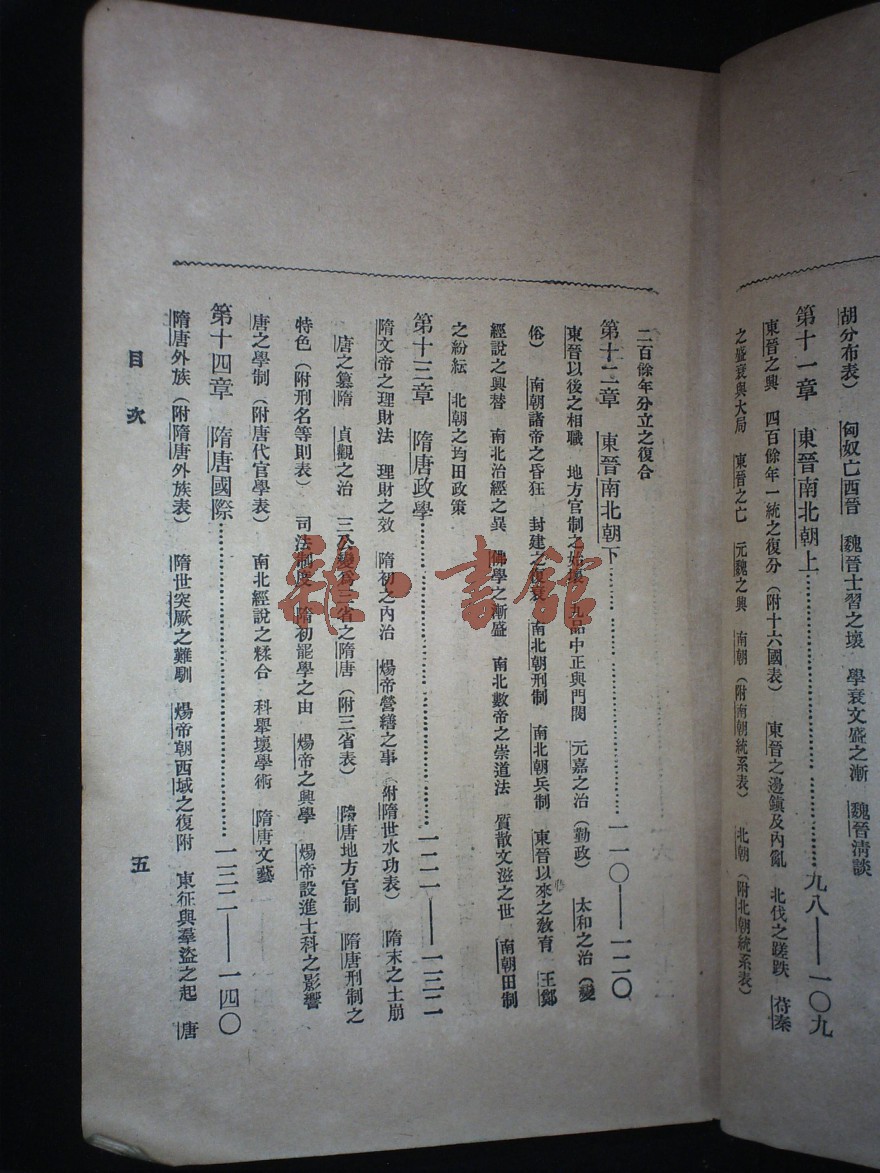 胡分布表） 匈奴亡西晉 魏晉士習之壞 學衰文盛之漸 魏晉清談
第十一章 東晉南北朝上……九八——一〇九
東晉之興 四百餘年一統之復分（附十六國表） 東晉之邊鎮及內亂 北伐之蹉跌 苻秦
之盛衰與大局 東晉之亡 元魏之興 南朝（附南朝統系表） 北朝（附北朝統系表）
二百餘年分立之復合
第十二章 東晉南北朝下……一一〇——一二〇
東晉以後之相職 地方官制之始壞 九品中正與門閥 元嘉之治（勤政） 太和之治（變
俗） 南朝諸帝之昏狂 封建之復衰 南北朝刑制 南北朝兵制 東晉以來之教育 王鄭
經說之興替 南北治經之異 佛學之漸盛 南北數帝之崇道法 質散文滋之世 南朝田制
之紛紜 北朝之均田政策
第十三章 隋唐政學……一二一——一三二
隋文帝之理財法 理財之效 隋初之內治 煬帝營繕之事（附隋世水功表） 隋末之土崩
唐之篡隋 貞觀之治 三公變爲三省之隋唐（附三省表） 隋唐地方官制 隋唐刑制之
特色（附刑名等則表） 司法制度 隋初罷學之由 煬帝之興學 煬帝設進士科之影響
唐之學制（附唐代官學表） 南北經說之糅合 科舉壞學術 隋唐文藝
第十四章 隋唐國際……一三二——一四〇
隋唐外族（附隋唐外族表） 隋世突厥之難馴 煬帝朝西域之復附 東征與羣盜之起 唐
目次
五
雜·書館